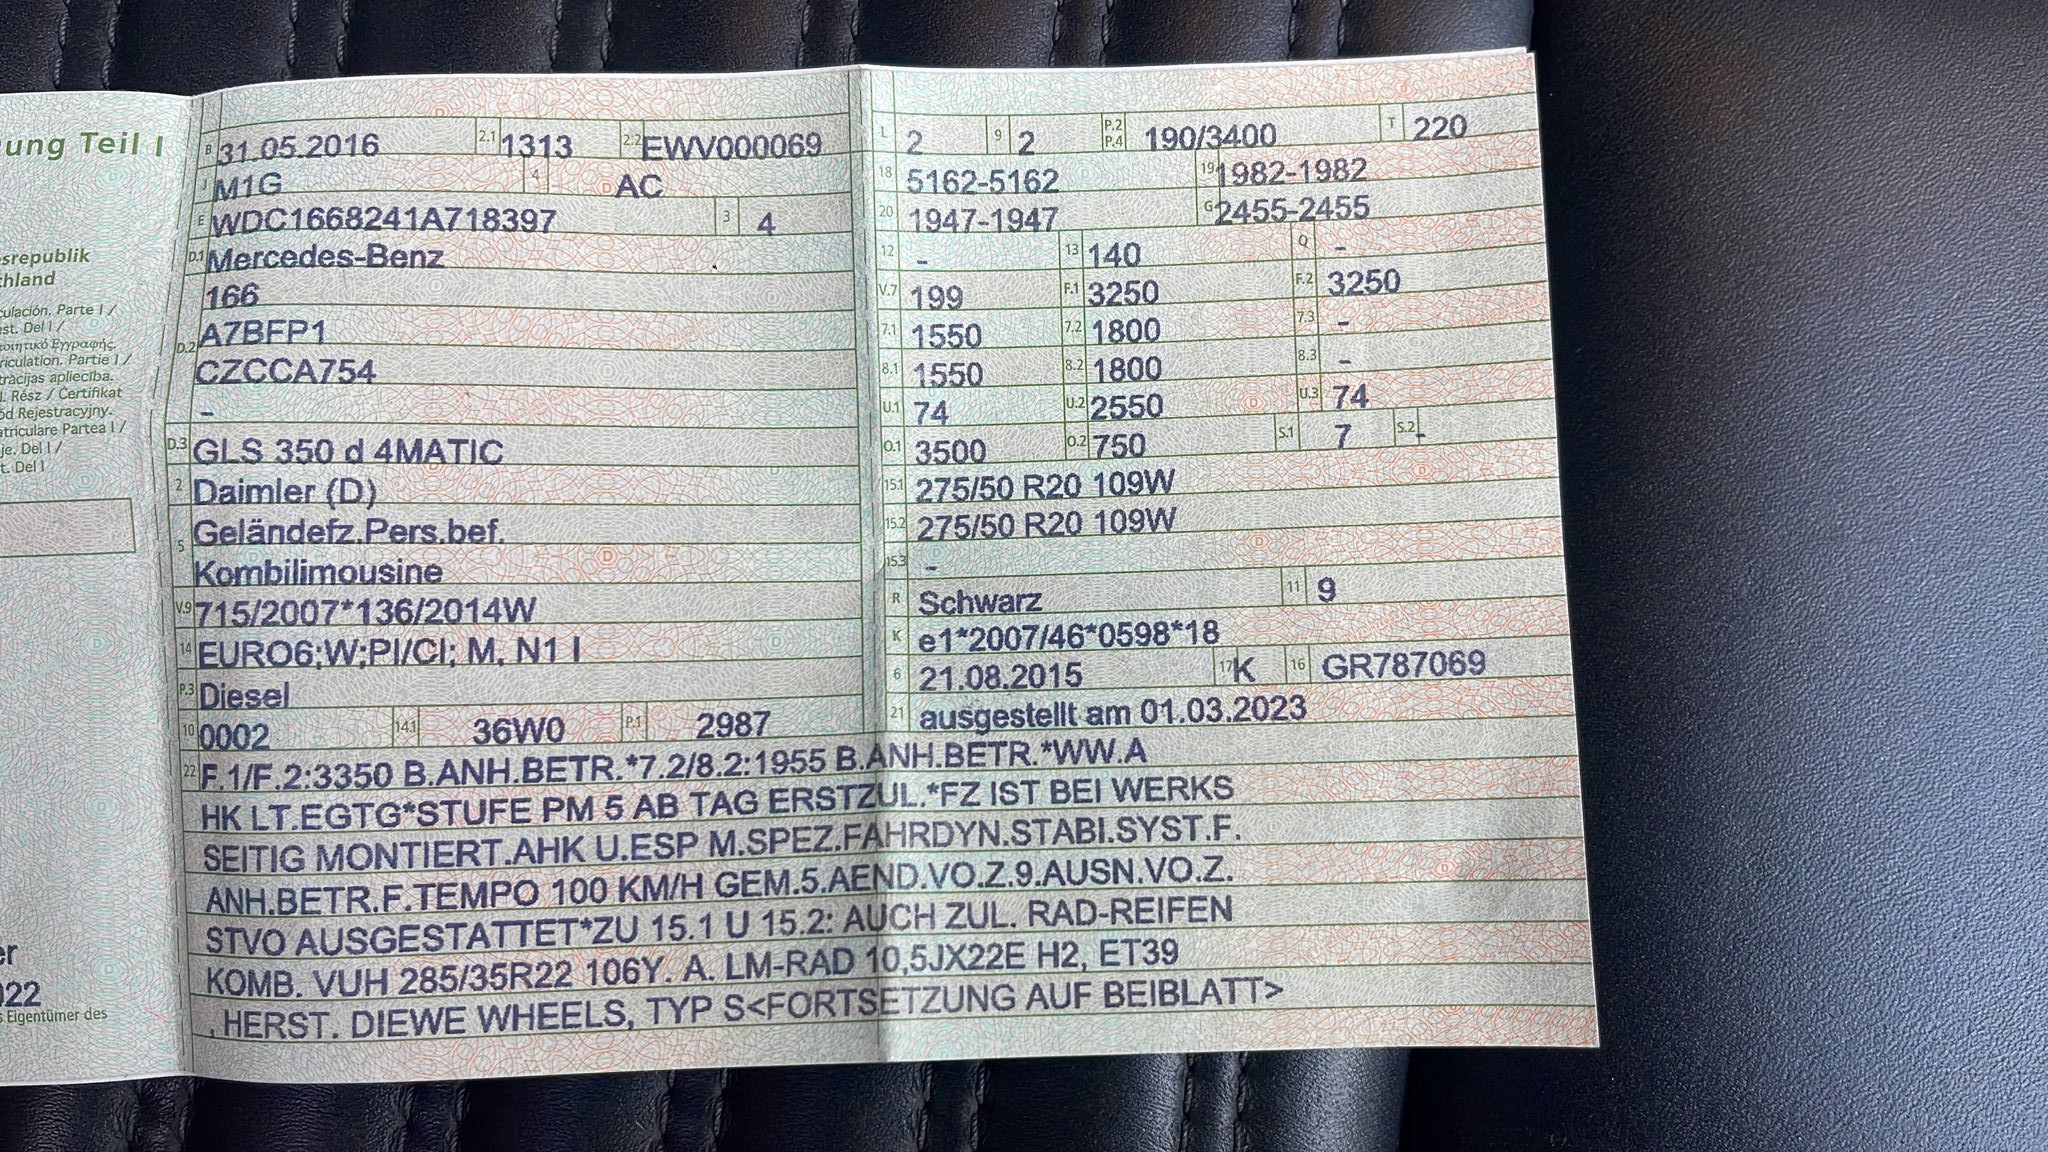 ung Teil I
esrepublik
chland
culación. Parte I /
est. Del I /
ποιητικό Εγγραφής.
riculation. Partie I /
trācijas apliecība.
I. Rész / Certifikat
ód Rejestracyjny.
atriculare Partea I /
je. Del I /
t. Del I
er
022
s Eigentümer des
B 31.05.2016 2.1 1313 2.2 EWV000069
J M1G 4 AC
E WDC1668241A718397 3 4
D.1 Mercedes-Benz
166
D.2 A7BFP1
CZCCA754
-
D.3 GLS 350 d 4MATIC
2 Daimler (D)
5 Geländefz.Pers.bef.
Kombilimousine
V.9 715/2007*136/2014W
14 EURO6;W;PI/CI; M, N1 I
P.3 Diesel
10 0002 14.1 36W0 P.1 2987
L 2 9 2 P.2 P.4 190/3400 T 220
18 5162-5162 19 1982-1982
20 1947-1947 G 2455-2455
12 - 13 140 Q -
V.7 199 F.1 3250 F.2 3250
7.1 1550 7.2 1800 7.3 -
8.1 1550 8.2 1800 8.3 -
U.1 74 U.2 2550 U.3 74
O.1 3500 O.2 750 S.1 7 S.2 -
15.1 275/50 R20 109W
15.2 275/50 R20 109W
15.3 -
R Schwarz 11 9
K e1*2007/46*0598*18
6 21.08.2015 17 K 16 GR787069
21 ausgestellt am 01.03.2023
22 F.1/F.2:3350 B.ANH.BETR.*7.2/8.2:1955 B.ANH.BETR.*WW.A
HK LT.EGTG*STUFE PM 5 AB TAG ERSTZUL.*FZ IST BEI WERKS
SEITIG MONTIERT.AHK U.ESP M.SPEZ.FAHRDYN.STABI.SYST.F.
ANH.BETR.F.TEMPO 100 KM/H GEM.5.AEND.VO.Z.9.AUSN.VO.Z.
STVO AUSGESTATTET*ZU 15.1 U 15.2: AUCH ZUL. RAD-REIFEN
KOMB. VUH 285/35R22 106Y. A. LM-RAD 10,5JX22E H2, ET39
, HERST. DIEWE WHEELS, TYP S<FORTSETZUNG AUF BEIBLATT>